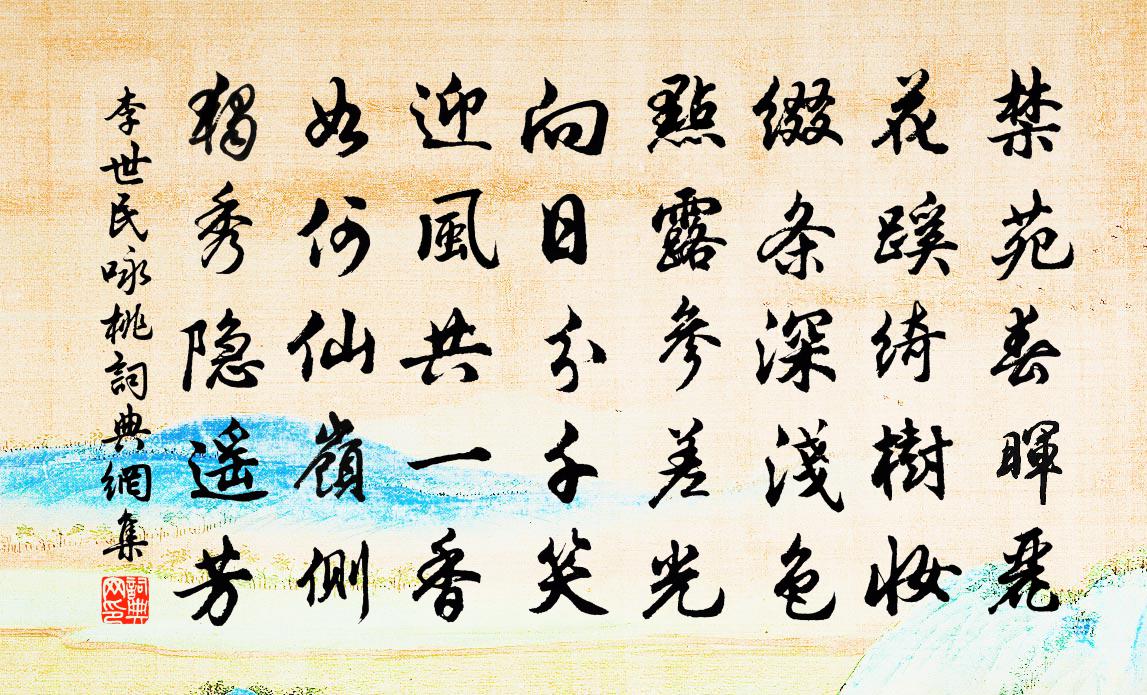 禁苑春暉麗
花蹊綺樹妝
綴条深淺色
點露參差光
向日分千笑
迎風共一香
如何仙嶺側
獨秀隐遥芳
李世民咏桃詞典網集
詞典网印